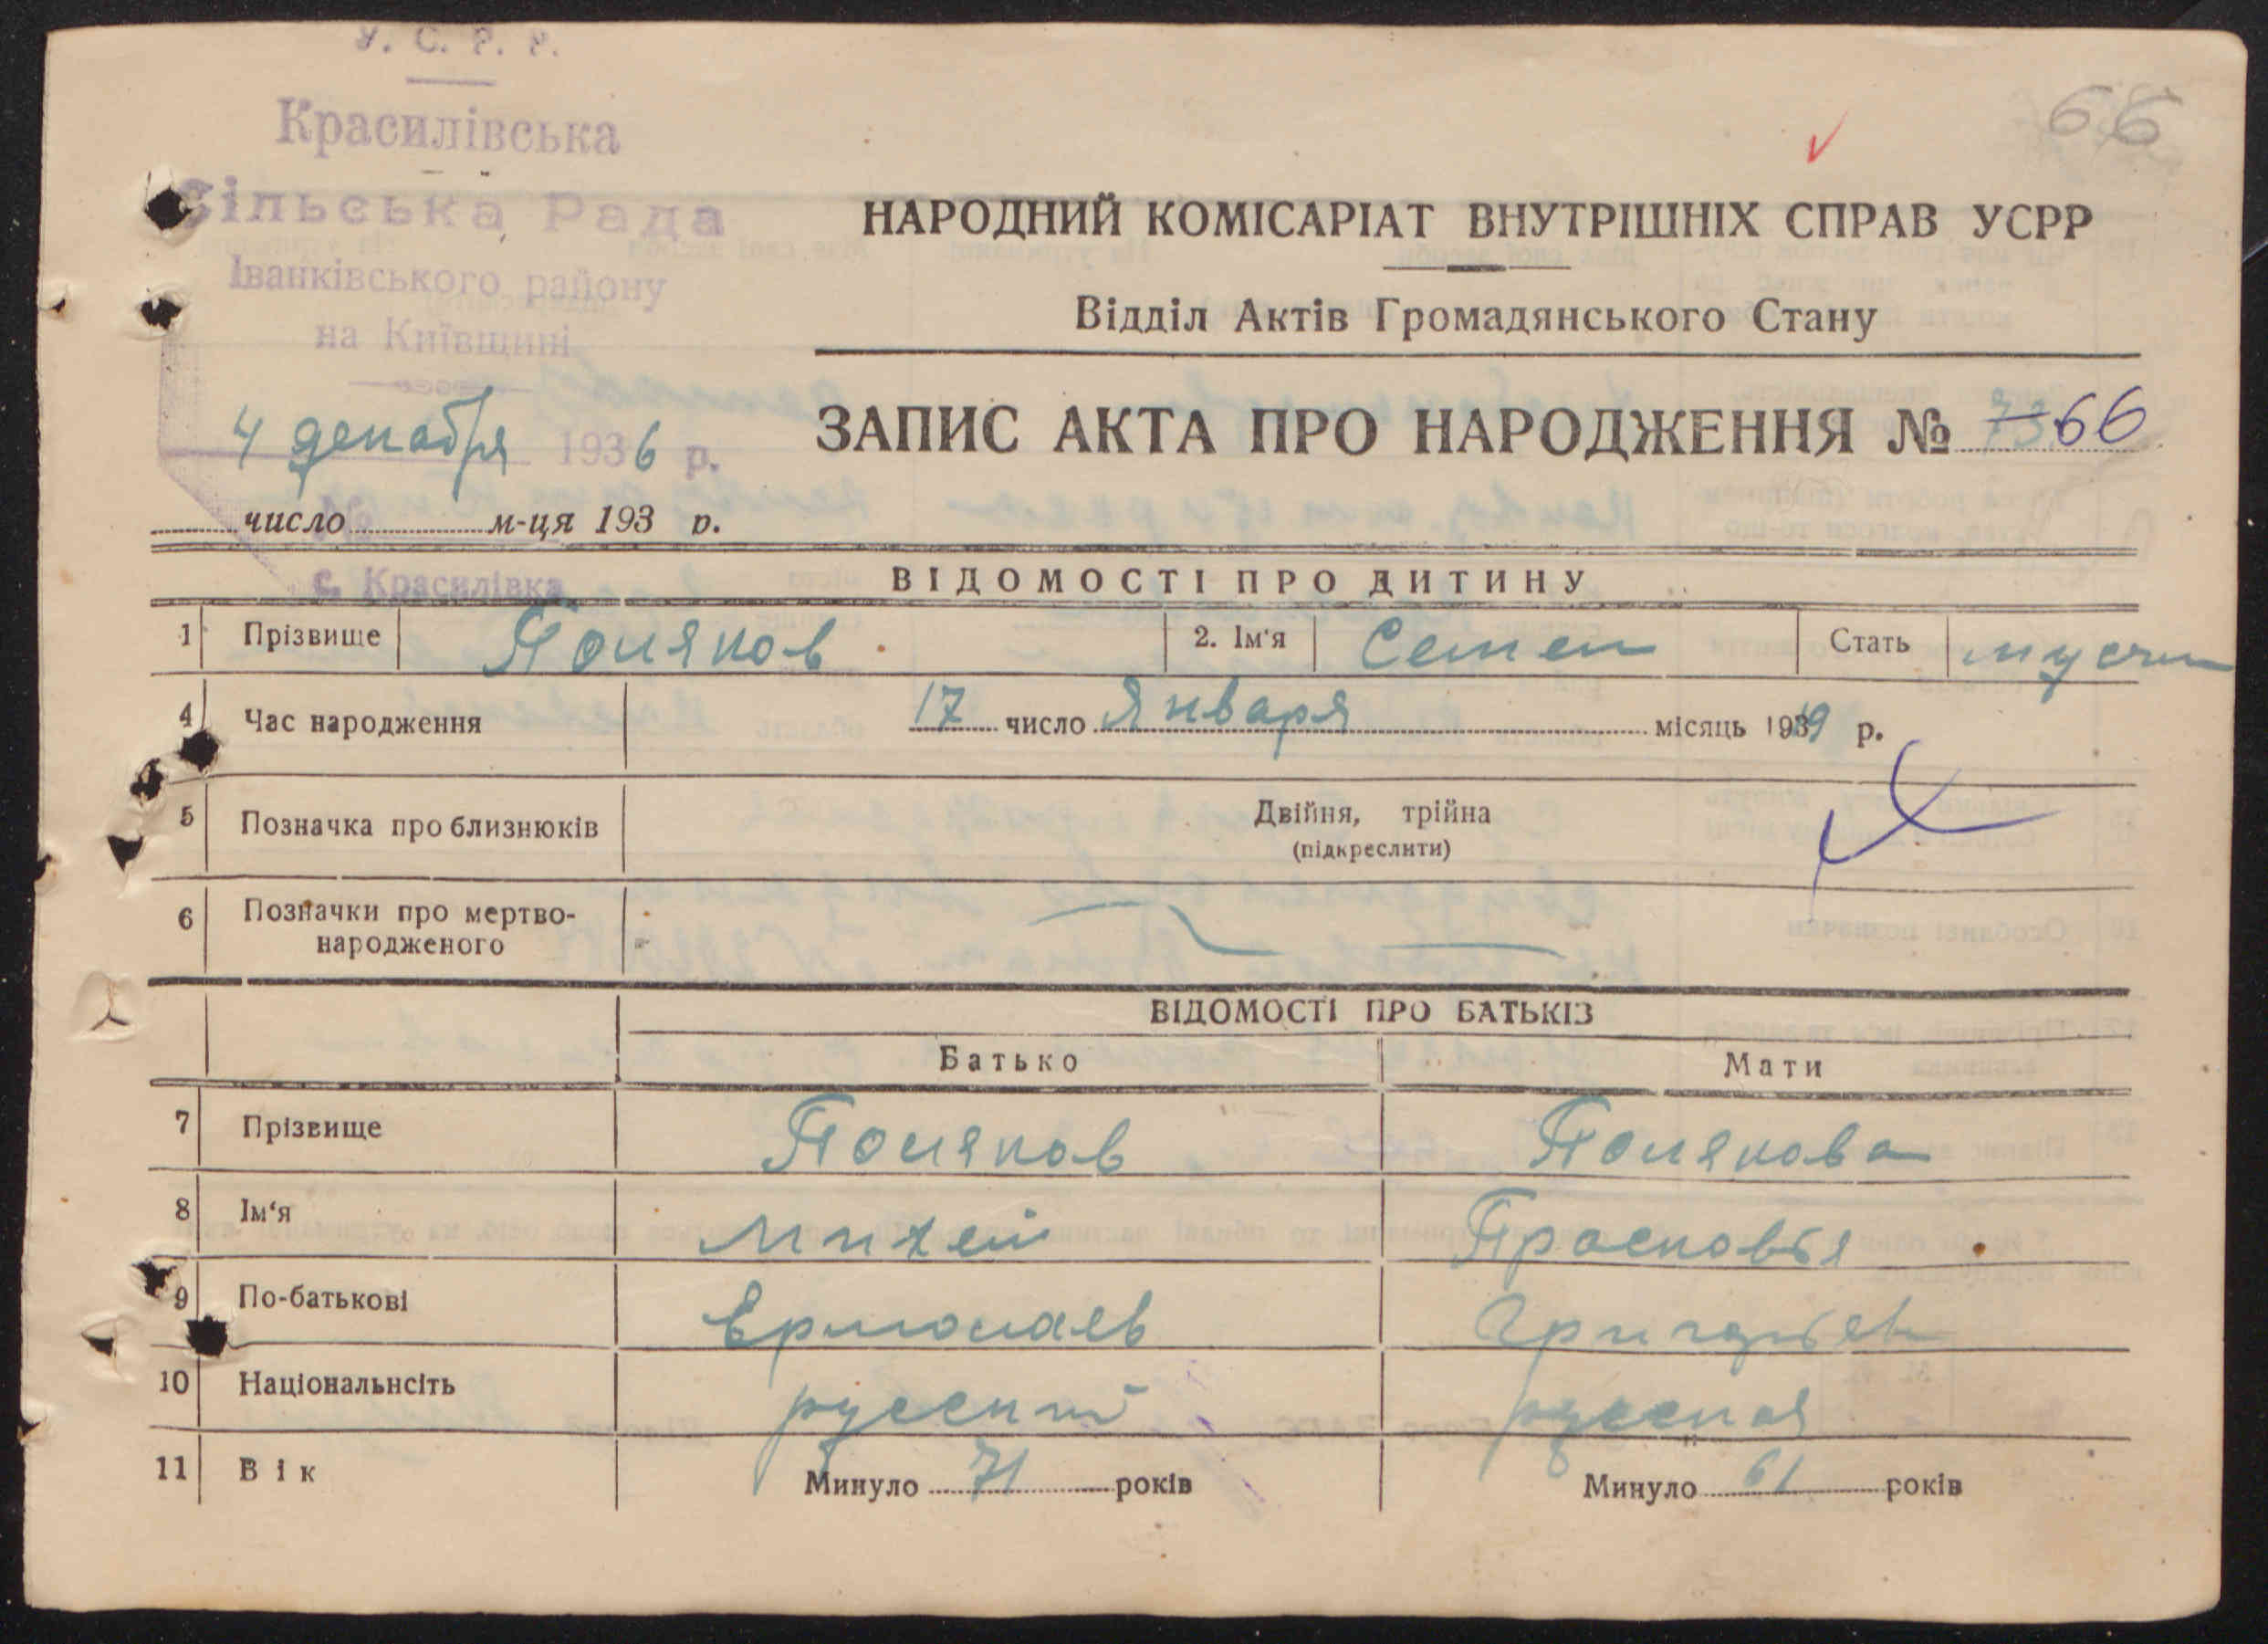 У. С. Р. Р.
66
Красилівська
Сільська Рада
Іванківського району
на Київщині
4 декабря 1936 р.
№
с. Красилівка
НАРОДНИЙ КОМІСАРІАТ ВНУТРІШНІХ СПРАВ УСРР
Відділ Актів Громадянського Стану
ЗАПИС АКТА ПРО НАРОДЖЕННЯ № 73 66
число м-ця 193 р.
ВІДОМОСТІ ПРО ДИТИНУ
1 Прізвище Поляков 2. Ім'я Семен Стать мусчи
4 Час народження 17 число Января місяць 1919 р.
5 Позначка про близнюків Двійня, трійна
(підкреслити)
6 Позначки про мертво-
народженого
ВІДОМОСТІ ПРО БАТЬКІВ
Батько Мати
7 Прізвище Поляков Полякова
8 Ім'я Михей Прасковья
9 По-батькові Ермолаев Григорьев
10 Національнсіть русский русская
11 Вік Минуло 71 років Минуло 61 років